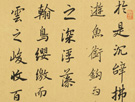 於是沉辭怫
遊魚銜鉤而
之深浮藻
翰鳥纓繳而
雲之峻收百